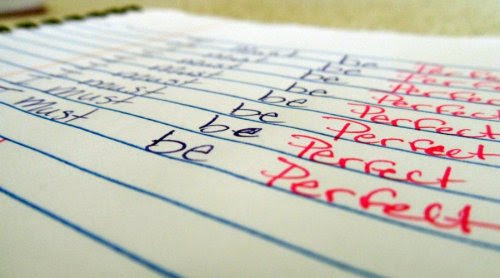 must be Perfect
must be Perfect
must be Perfect
I must be Perfect
I must be Perfect
I must be Perfect
I Must be Perfect